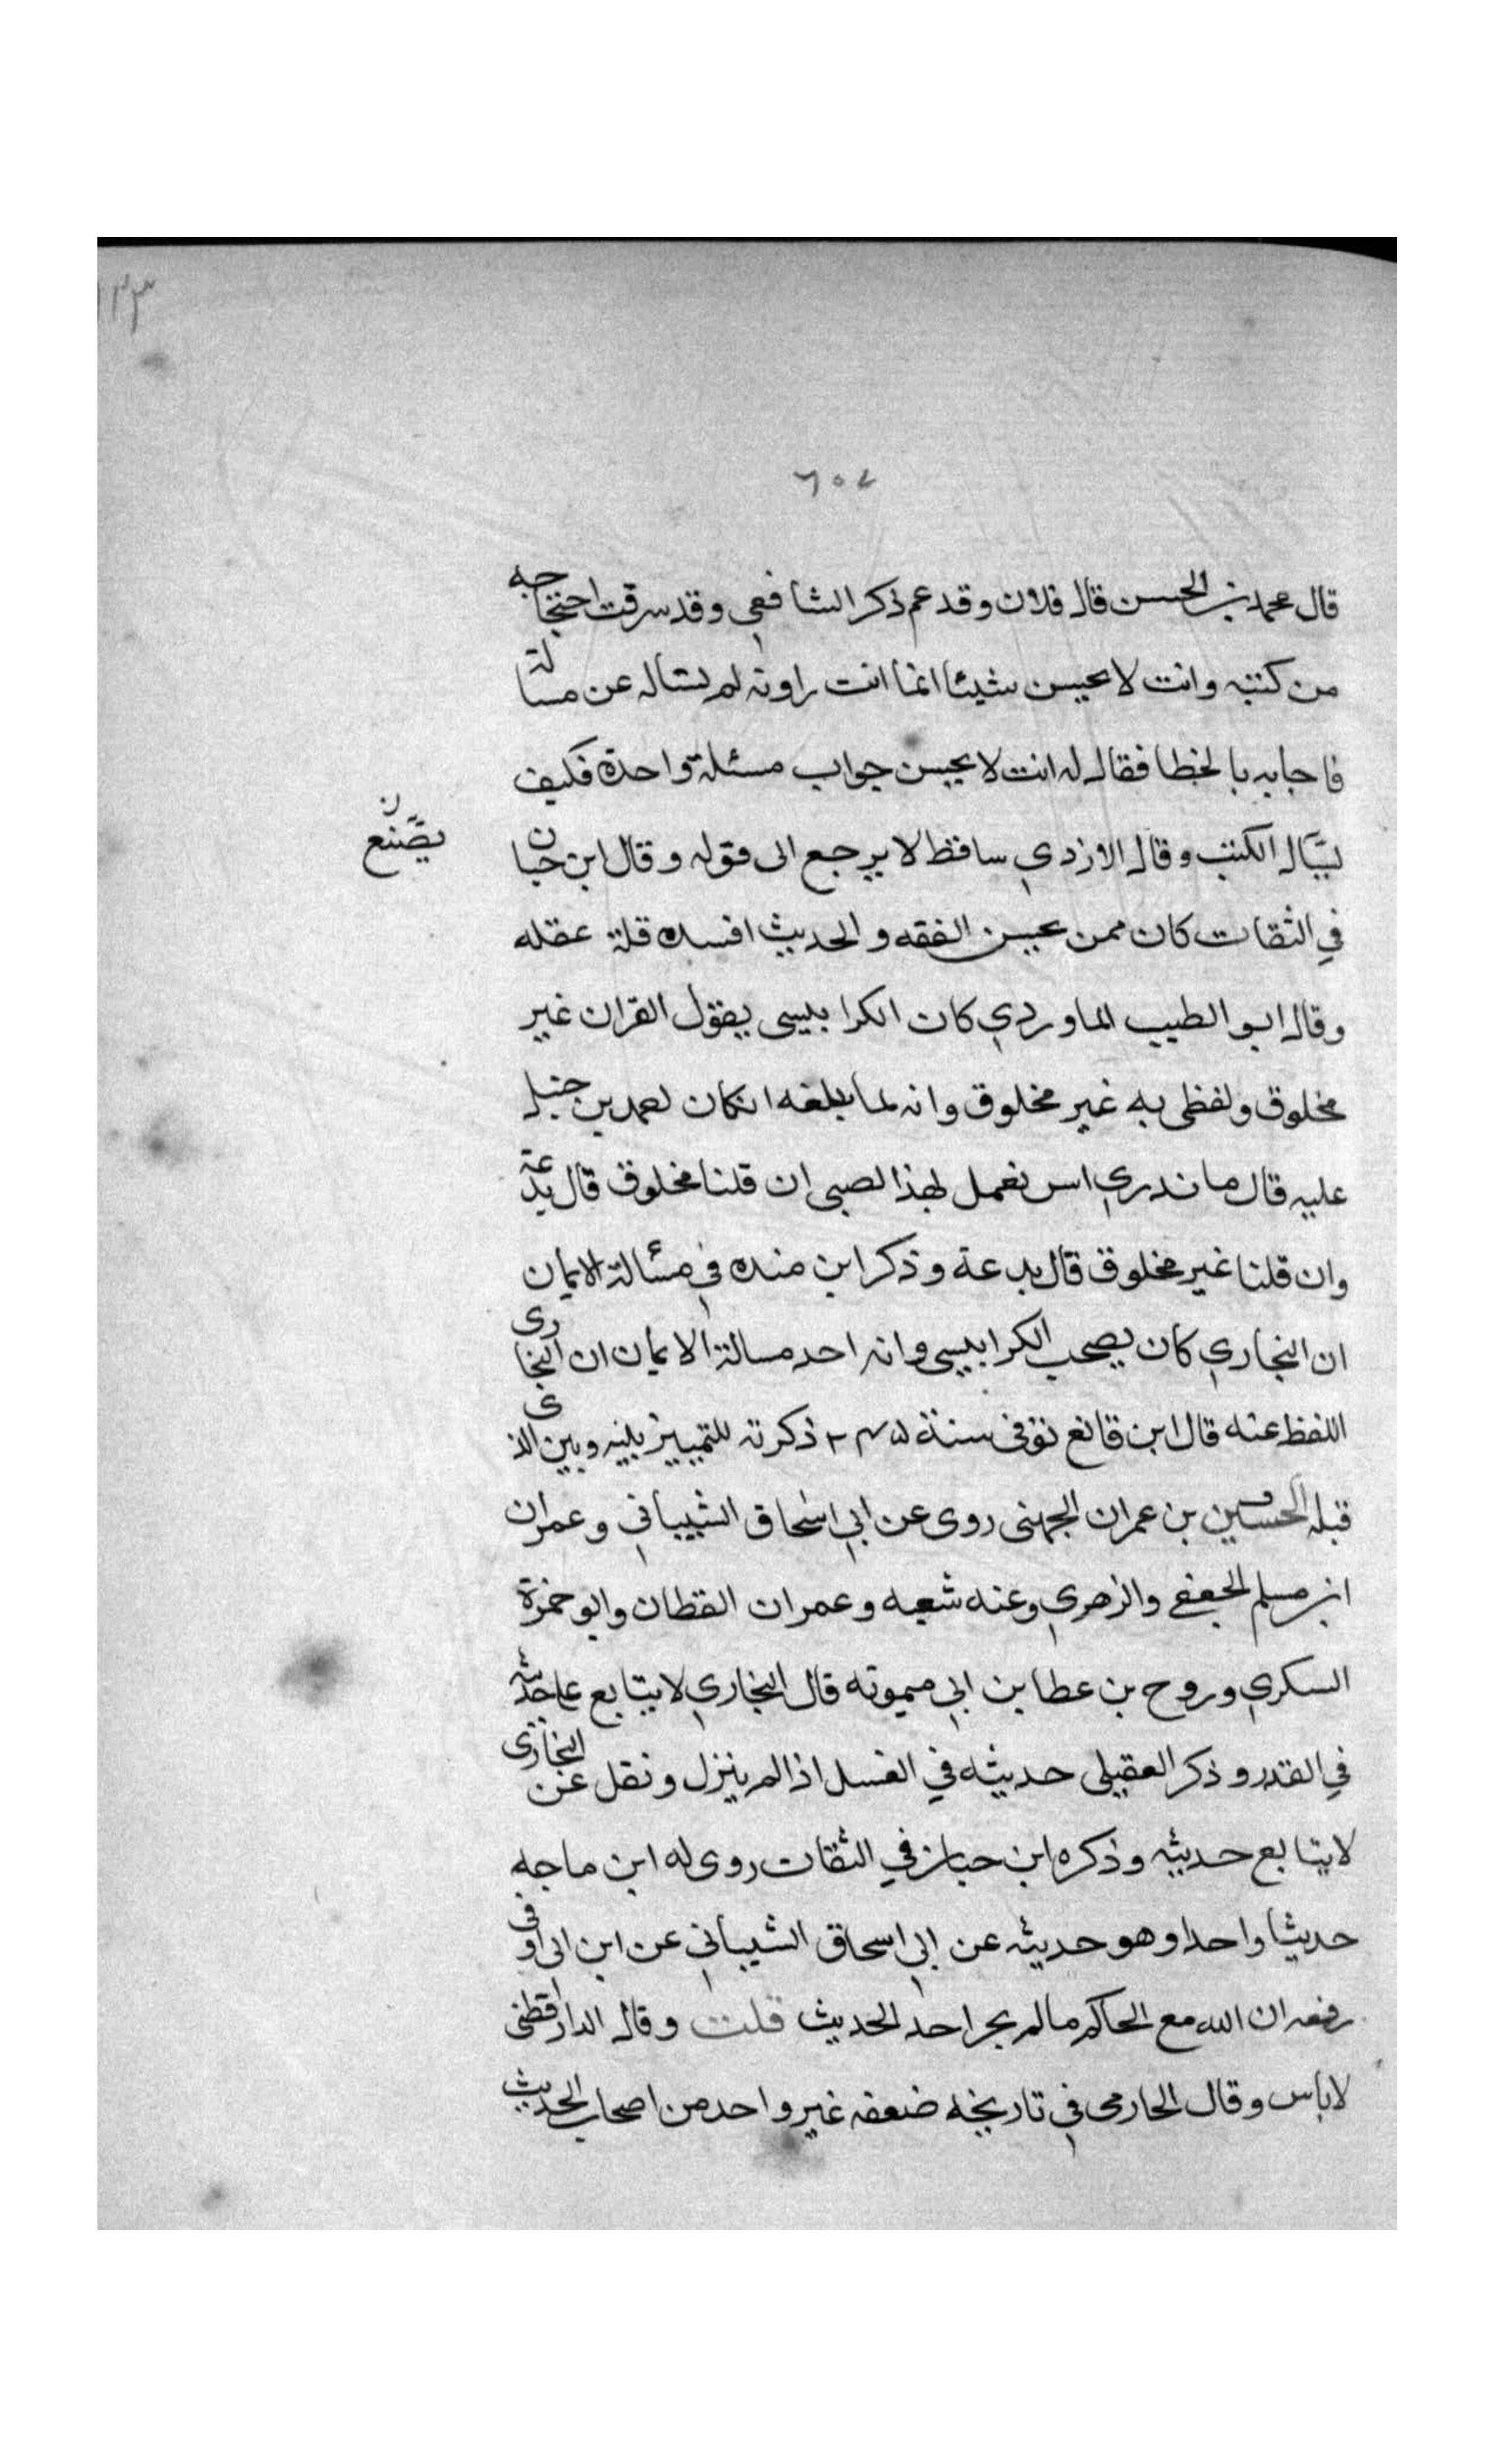 ١٣٣
٦٥٧
قال محمد بن الحسن قال فلان وقد عم ذكر الشافعي وقد سرقت احتجاجه
من كتبه وانت لا تحسن شيئا انما انت راويه لم تساله عن مسالة
فاجابه بالخطا فقال له انت لا تحسن جواب مسئلة واحدة فكيف
الكتب وقال الازدي ساقط لا يرجع الى قوله وقال ابن حبان
يصنع ن
في الثقات كان ممن يحسن الفقه والحديث افسده قلة عقله
وقال ابو الطيب الماوردي كان الكرابيسى يقول القران غير
مخلوق ولفظى به غير مخلوق وانه لما بلغه انكان بن حنبل
عليه قال ما ندري نعمل لهذا لصبى ان قلنا مخلوق قال بدعة
وان قلنا غير مخلوق قال بدعة وذكر ابن منده في مسالة الايمان
ان البخاري كان يصحب الكرابيسى وانه احد مسالة الايمان ان البخارى
اللفظ عنه قال ابن قانع توفى سنة ٢٤٥ ذكرته للتمييز بينه وبين الذى
قبله الحسين بن عمران الجهنى روى عن ابي اسحاق الشيباني وعمران
ابن مسلم الجعفى والزهري وعنه شعبه وعمران القطان وابو حمزة
السكري وروح بن عطا بن ابي ميمونه قال البخاري لا يتابع على حديثه
في القدر وذكر العقيلى حديثه في الغسل اذا لم ينزل ونقل عن البخارى
لا يتابع حديثه وذكره ابن حبان في الثقات روى له ابن ماجه
حديثا واحدا وهو حديثه عن ابي اسحاق الشيباني عن ابن ابى اوفى
رفعه ان الله مع الحاكم ما لم يجر احد الحديث قلت وقال الدارقطنى
لا باس وقال الحارمى في تاريخه ضعفه غير واحد من اصحاب الحديث